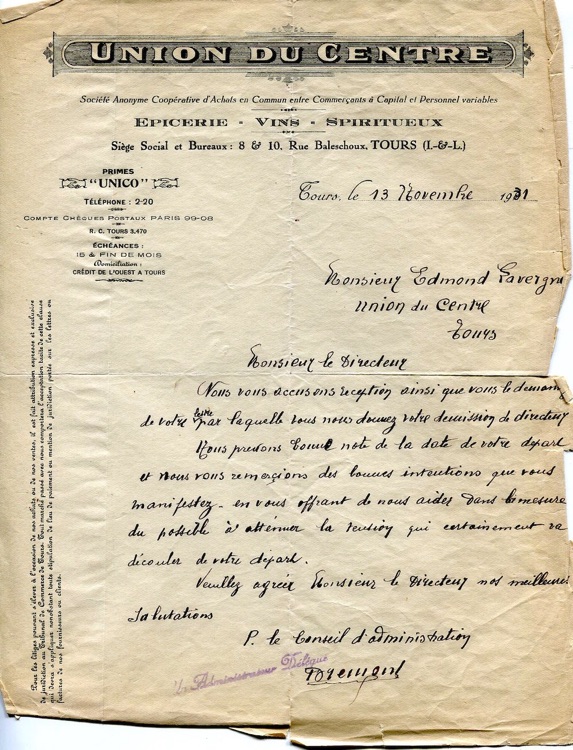 UNION DU CENTRE
Société Anonyme Coopérative d'Achats en Commun entre Commerçants à Capital et Personnel variables
EPICERIE - VINS - SPIRITUEUX
Siège Social et Bureaux : 8 & 10, Rue Baleschoux, TOURS (I.-&-L.)
PRIMES
"UNICO"
TÉLÉPHONE : 2-20
COMPTE CHÈQUES POSTAUX PARIS 99-08
R. C. TOURS 3.470
ÉCHÉANCES :
15 & FIN DE MOIS
Domiciliation :
CRÉDIT DE L'OUEST A TOURS
Tours, le 13 Novembre 1931
Monsieur Edmond Lavergne
Union du Centre
Tours
Monsieur le Directeur
Nous vous accusons réception ainsi que vous le demand
de votre lettre par laquelle vous nous donnez votre demission de directeur
Nous prenons bonne note de la date de votre départ
et nous vous remerçions des bonnes intentions que vous
manifestez - en vous offrant de nous aider dans la mesure
du possible à attenuer la tension qui certainement va
découler de votre départ.
Veuillez agréer Monsieur le Directeur nos meilleures
Salutations
P. le Conseil d'administration
Administrateur Délégué
Tous les litiges pouvant s'élever à l'occasion de nos achats ou de nos ventes, il est fait attribution expresse et exclusive
de juridiction au Tribunal de Commerce de Tours. Tout marché passé avec nous comportera l'acceptation tacite de cette clause
qui devra s'appliquer nonobstant toute stipulation de lieu de paiement ou mention de juridiction portés sur les lettres ou
factures de nos fournisseurs ou clients.